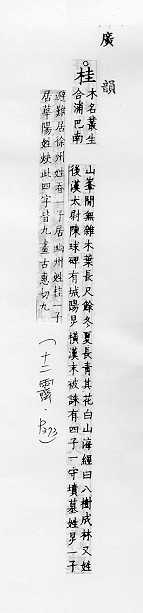 廣韻
桂 木名叢生合浦巴南
山峯間無雜木葉長尺餘冬夏長青其花白山海經曰八樹成林又姓
後漢太尉陳球碑有城陽炅橫漢末被誅有四子一守墳墓姓炅一子
避難居徐州姓香一子居幽州姓桂一子
居華陽姓炔此四字皆九畫古惠切九
(十二霽・P273)